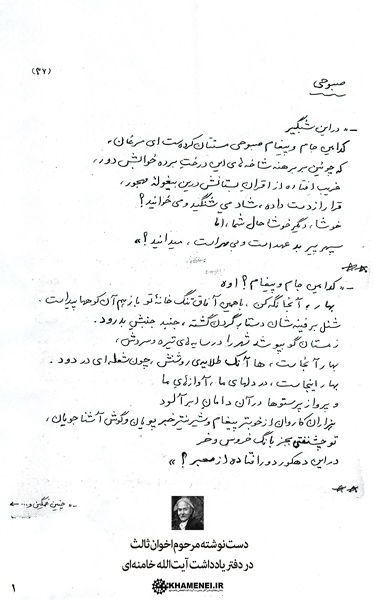 (۳۷)
صبوحی
ـ « در این شبگیر
کدامین جام و پیغام صبوحی مستتان کرده ست ای مرغان،
که چونین بر برهنه شاخه های این درخت برده خوابش دور،
غریب افتاده از اقران بستانش درین بیغوله مهجور،
قرار از دست داده، شاد می شنگید و می خوانید؟
خوشا، دیگر خوشا حال شما، اما
سپهر پیر بد عهد است و بی مهر است، میدانید؟ »
***
ـ « کدامین جام و پیغام؟ اوه
بهار، آنجا نگه کن، با همین آفاق تنگ خانه تو باز هم آن کوهها پیداست.
شنل برفینه شان دستار گردن گشته، جنبد جنبش بدرود.
زمستان گو بپوشد شهر را در سایه های تیره و سردش،
بهار آنجاست، ها آنک طلایه ی روشنش، چون شعله ای در دود.
بهار اینجاست، در دلهای ما، آوازهای ما
و پرواز پرستوها در آن دامان ابرآلود
هزاران کاروان از خوبتر پیغام و شیرینتر خبر پویان و گوش آشنا جویان،
تو چشنفتی بجز بانگ خروس و خر
در این دهکور دور افتاده از معبر؟ »
***
ـ « چنین غمگین و ... ←
دست‌نوشته مرحوم اخوان ثالث
در دفتر یادداشت آیت‌الله خامنه‌ای
KHAMENEI.IR
۱